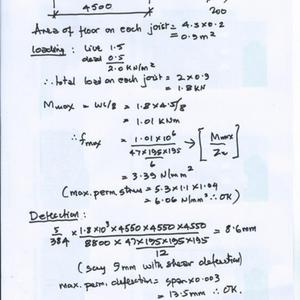 4500
200
Area of floor on each joist = 4.5 x 0.2
= 0.9 m²
Loading: Live 1.5
dead 0.5
2.0 KN/m²
∴ total load on each joist = 2 x 0.9
= 1.8 KN
Mmax = WL/8 = 1.8 x 4.5/8
= 1.01 KNm
∴ fmax = 1.01 x 10⁶ / (47 x 195 x 195 / 6) → [Mmax / Zxx]
= 3.39 N/mm²
(max. perm. stress = 5.3 x 1.1 x 1.04
= 6.06 N/mm² ∴ OK)
Deflection:
5/384 x 1.8 x 10³ x 4550 x 4550 x 4550 / (8800 x 47 x 195 x 195 x 195 / 12) = 8.6mm
(say 9mm with shear deflection)
max. perm. deflection = span x 0.003
= 13.5mm ∴ OK.